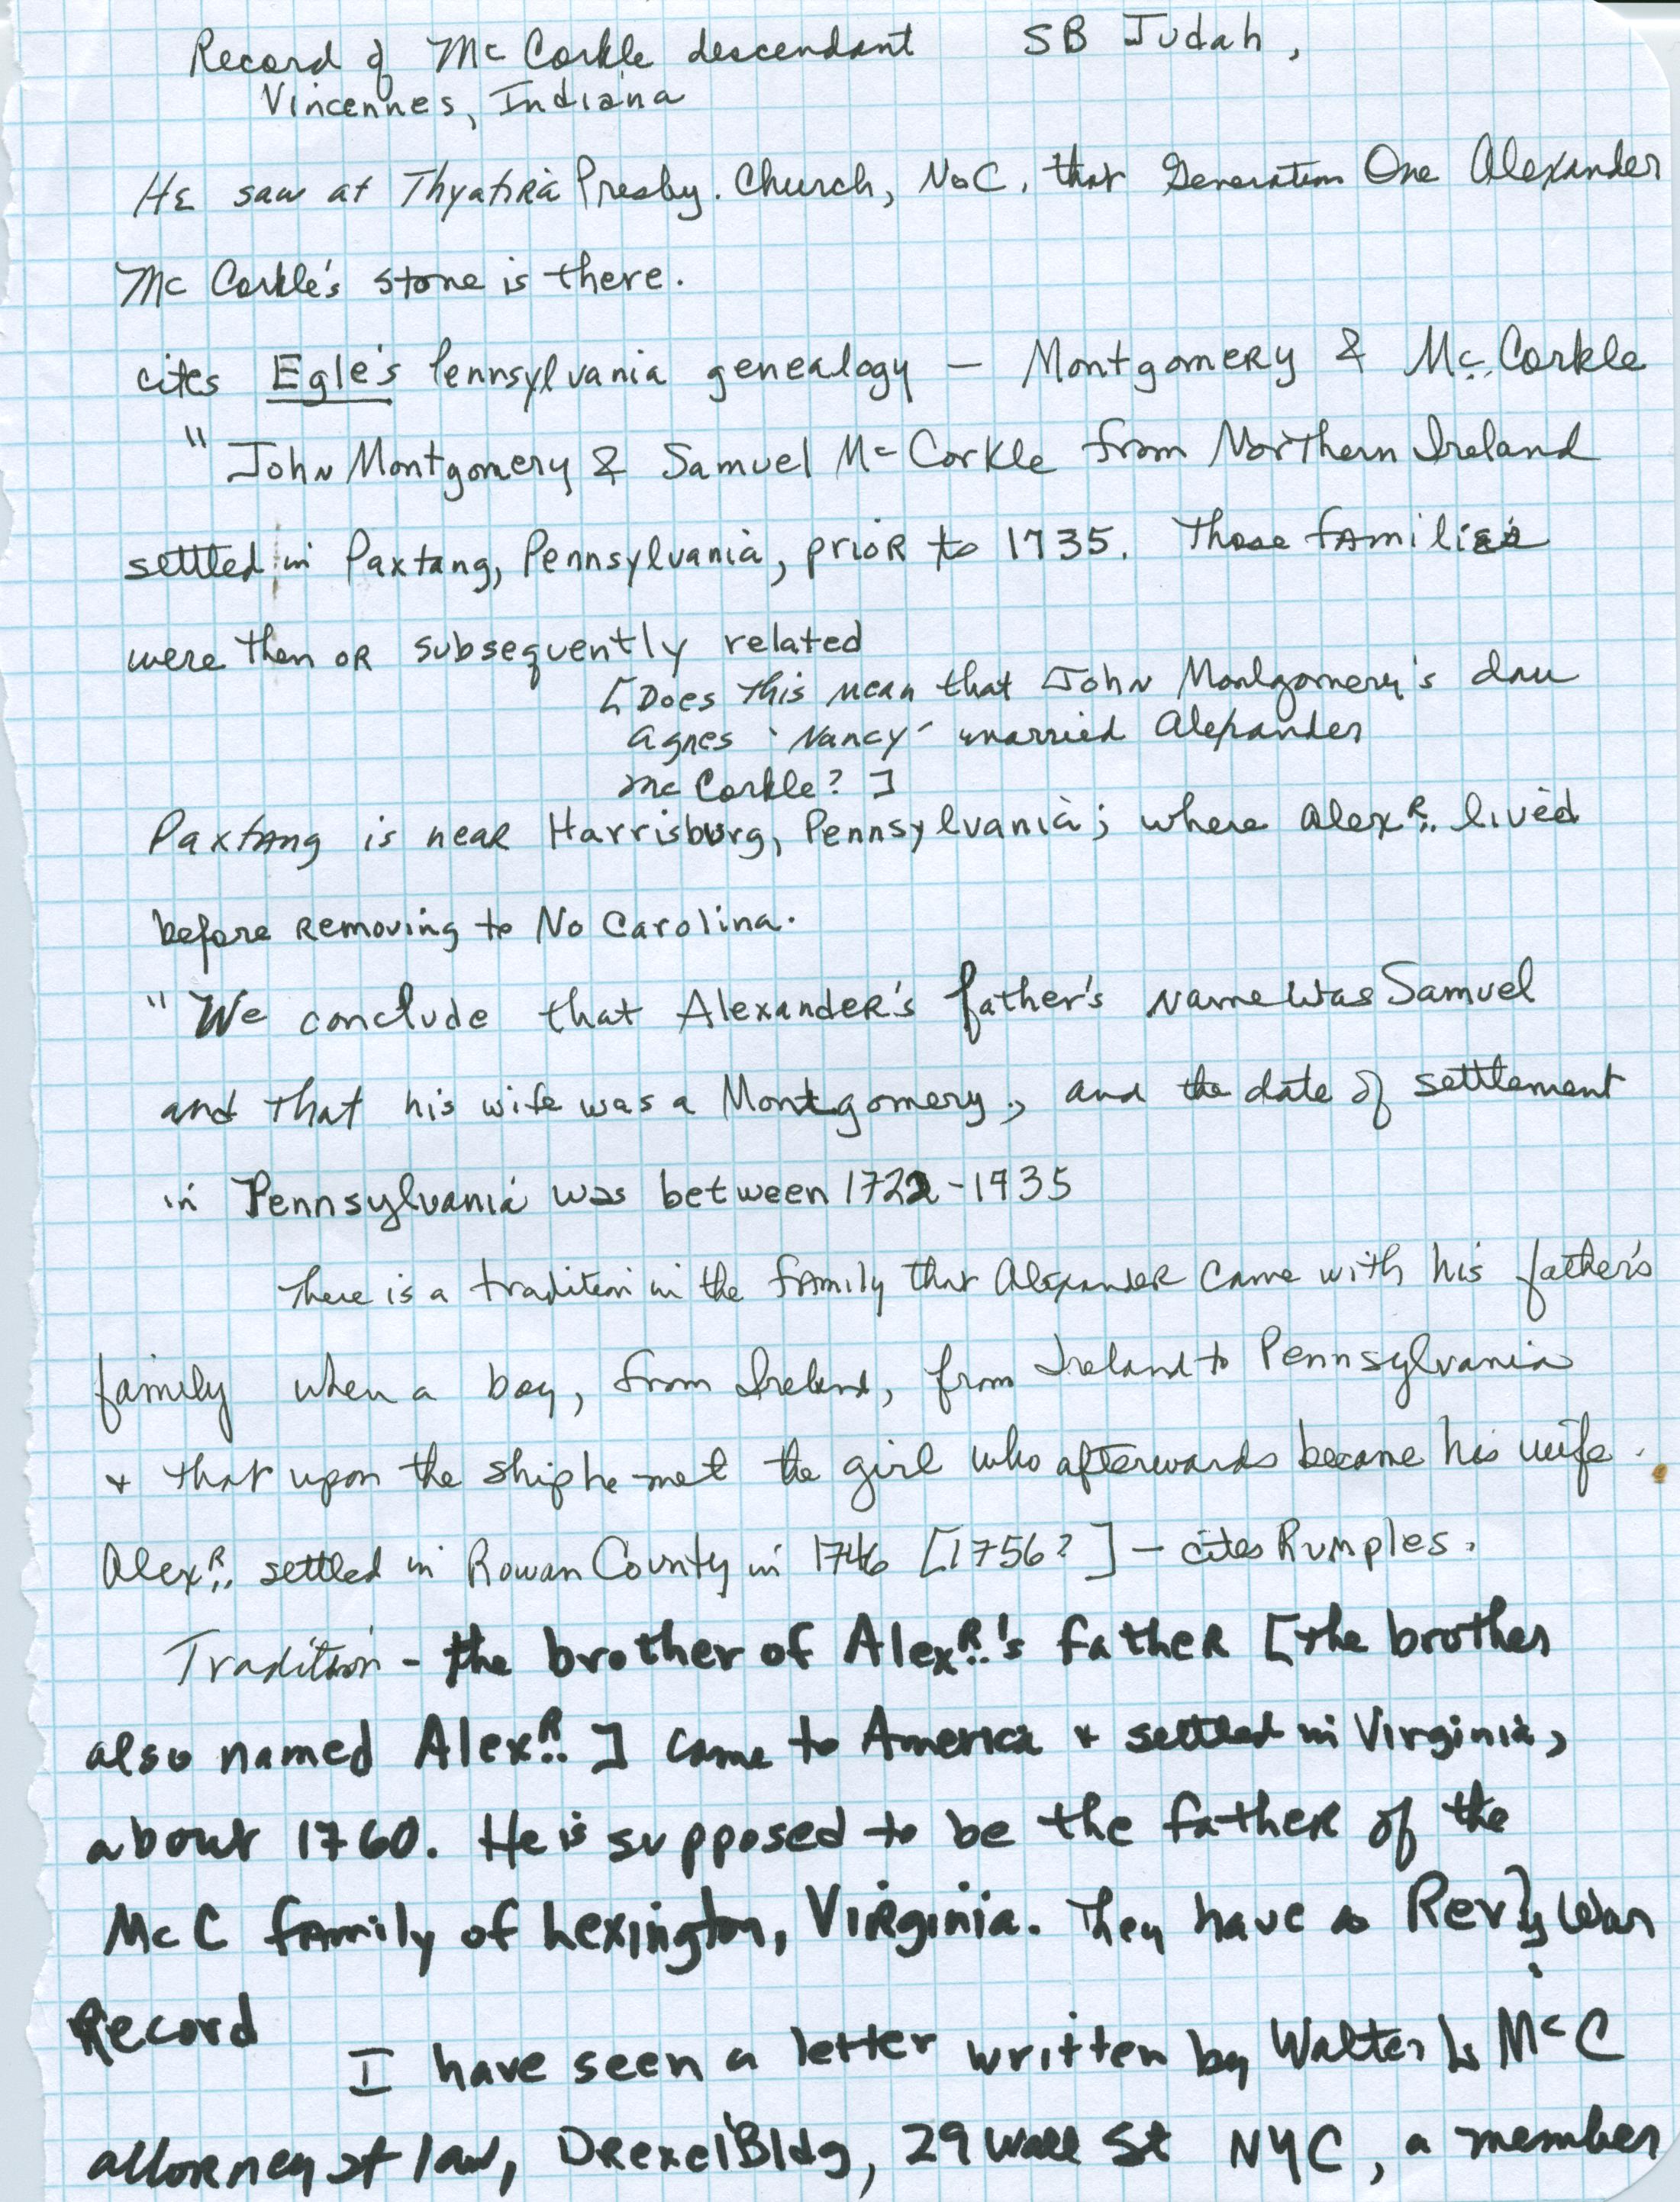 Record of McCorkle descendant SB Judah,
Vincennes, Indiana
He saw at Thyatira Presby. Church, No C, that Generation One Alexander
McCorkle's stone is there.
cites Egle's Pennsylvania genealogy — Montgomery & McCorkle
"John Montgomery & Samuel McCorkle from Northern Ireland
settled in Paxtang, Pennsylvania, prior to 1735. Those families
were then or subsequently related
[Does this mean that John Montgomery's dau
Agnes 'Nancy' married Alexander
McCorkle?]
Paxtang is near Harrisburg, Pennsylvania; where Alexr. lived
before removing to No Carolina.
"We conclude that Alexander's father's name was Samuel
and that his wife was a Montgomery, and the date of settlement
in Pennsylvania was between 1722-1735
There is a tradition in the family that Alexander came with his father's
family when a boy, from Ireland, from Ireland to Pennsylvania
+ that upon the ship he met the girl who afterwards became his wife.
Alexr. settled in Rowan County in 1746 [1756?] — cites Rumples.
Tradition - the brother of Alexr.'s father [the brother
also named Alexr.] came to America + settled in Virginia,
about 1760. He is supposed to be the father of the
McC family of Lexington, Virginia. They have a Rev War
Record
I have seen a letter written by Walter L McC
attorney at law, Drexel Bldg, 29 Wall St NYC, a member